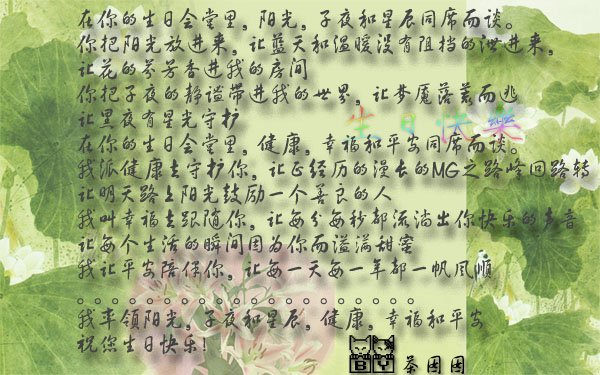 在你的生日会堂里，阳光，子夜和星辰同席而谈。
你把阳光放进来，让蓝天和温暖没有阻挡的泄进来，
让花的芬芳香进我的房间
你把子夜的静谧带进我的世界，让梦魇落荒而逃
让黑夜有星光守护
生日快樂
在你的生日会堂里，健康，幸福和平安同席而谈。
我派健康去守护你，让正经历的漫长的MG之路峰回路转
让明天路上阳光鼓励一个善良的人
我叫幸福去跟随你，让每分每秒都流淌出你快乐的声音
让每个生活的瞬间因为你而溢满甜蜜
我让平安陪伴你，让每一天每一年都一帆风顺
。。。。。。。。。。。。。。。。。。。。
我率领阳光，子夜和星辰，健康，幸福和平安
祝您生日快乐！
BY 茶团团